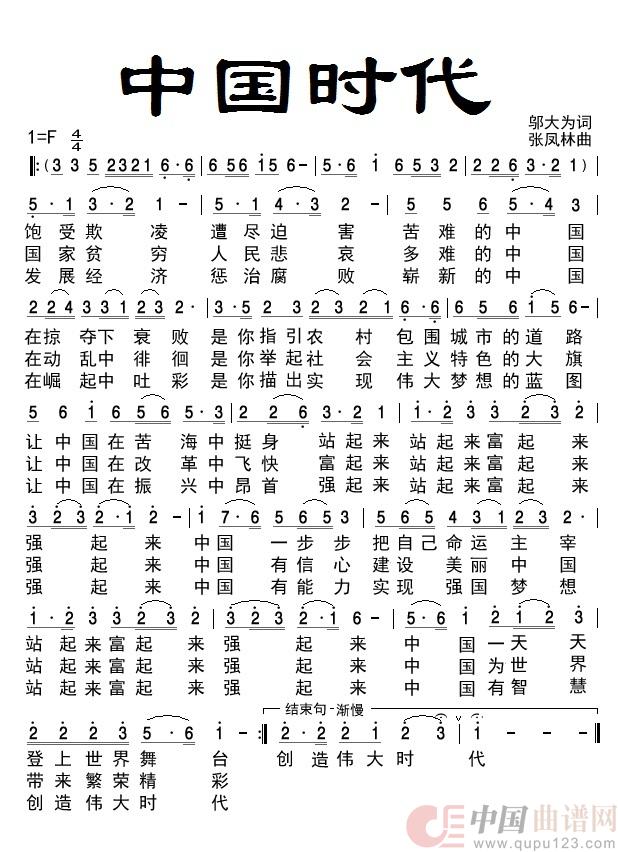 中国时代
邬大为词
1=F 4/4
张凤林曲
‖:(3 3 5 2321 6·6 | 6 5 6 i 5 6 - | 3 3 5 2321 6·3 | 2 2 6 3·2 1) |
5·1 3·2 1 | 6·5 6 5 3 - | 5 5 6 5·2 3 |
饱受欺凌 遭尽迫害 苦难的中国
国家贫穷 人民悲哀 多难的中国
发展经济 惩治腐败 崭新的中国
2 2 4 3 3 1 2 3 2 - | 3·5 2 1 2 3 2 1 6·6 | 5 6 5 i 5 6 - |
在掠夺下衰败 是你指引农村包围城市的道路
在动乱中徘徊 是你举起社会主义特色的大旗
在崛起中吐彩 是你描出实现伟大梦想的蓝图
5 6 i 6 5 6 5·3 | 2 2 6 3·2 1 | 6 6 i 3 2 3 |
让中国在苦海中挺身 站起来 站起来富起来
让中国在改革中飞快 富起来 站起来富起来
让中国在振兴中昂首 强起来 站起来富起来
3 2 3 2·1 2 - | i 7·6 5 6 5 3 | 5 6 5 4 3 2 3 2 - |
强起来 中国一步步把自己命运主宰
强起来 中国有信心建设美丽中国
强起来 中国有能力实现强国梦想
i·2 3·2 3 | 2·3 2 i 6 - | i·3 2 2 i 2 3 |
站起来富起来强起来 中国一天天
站起来富起来强起来 中国为世界
站起来富起来强起来 中国有智慧
结束句-渐慢
2·2 2 2 3 5·6 i - :‖ 2·2 2 2 1 2 3 | i - - - ‖
登上世界舞台 创造伟大时代
带来繁荣精彩
创造伟大时代
中国曲谱网
www.qupu123.com